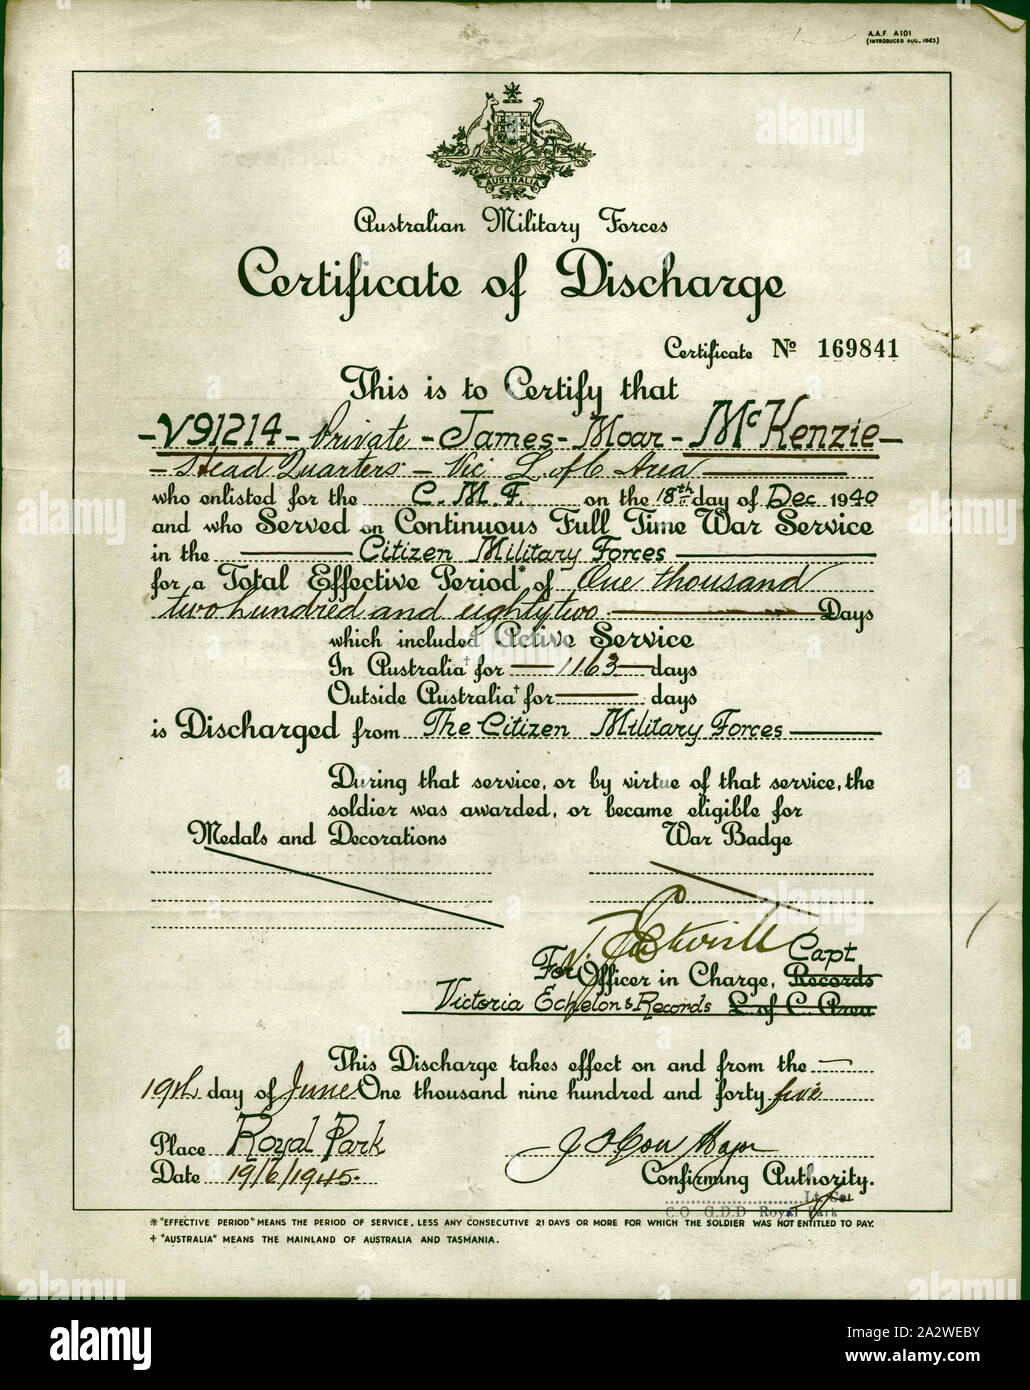 A.A.F. A101
(INTRODUCED AUG. 1943)
AUSTRALIA
Australian Military Forces
Certificate of Discharge
Certificate No 169841
This is to Certify that
-V91214- Private - James - Moar - McKenzie -
- Head Quarters - Vic L of C Area
who enlisted for the C. M. F. on the 18th day of Dec 1940
and who Served on Continuous Full Time War Service
in the Citizen Military Forces
for a Total Effective Period* of One thousand
two hundred and eighty two Days
which included Active Service
In Australia† for 1163 days
Outside Australia† for days
is Discharged from The Citizen Military Forces
During that service, or by virtue of that service, the
soldier was awarded, or became eligible for
Medals and Decorations War Badge
Capt
For Officer in Charge, Records
Victoria Echelon & Records L of C. Area
This Discharge takes effect on and from the
19th day of June One thousand nine hundred and forty five
Place Royal Park
Major
Date 19/6/1945.
Confirming Authority.
Lt Col
C.O G.D.D Royal Park
* "EFFECTIVE PERIOD" MEANS THE PERIOD OF SERVICE, LESS ANY CONSECUTIVE 21 DAYS OR MORE FOR WHICH THE SOLDIER WAS NOT ENTITLED TO PAY.
† "AUSTRALIA" MEANS THE MAINLAND OF AUSTRALIA AND TASMANIA.
alamy
Image ID: 2A2WEBY
www.alamy.com